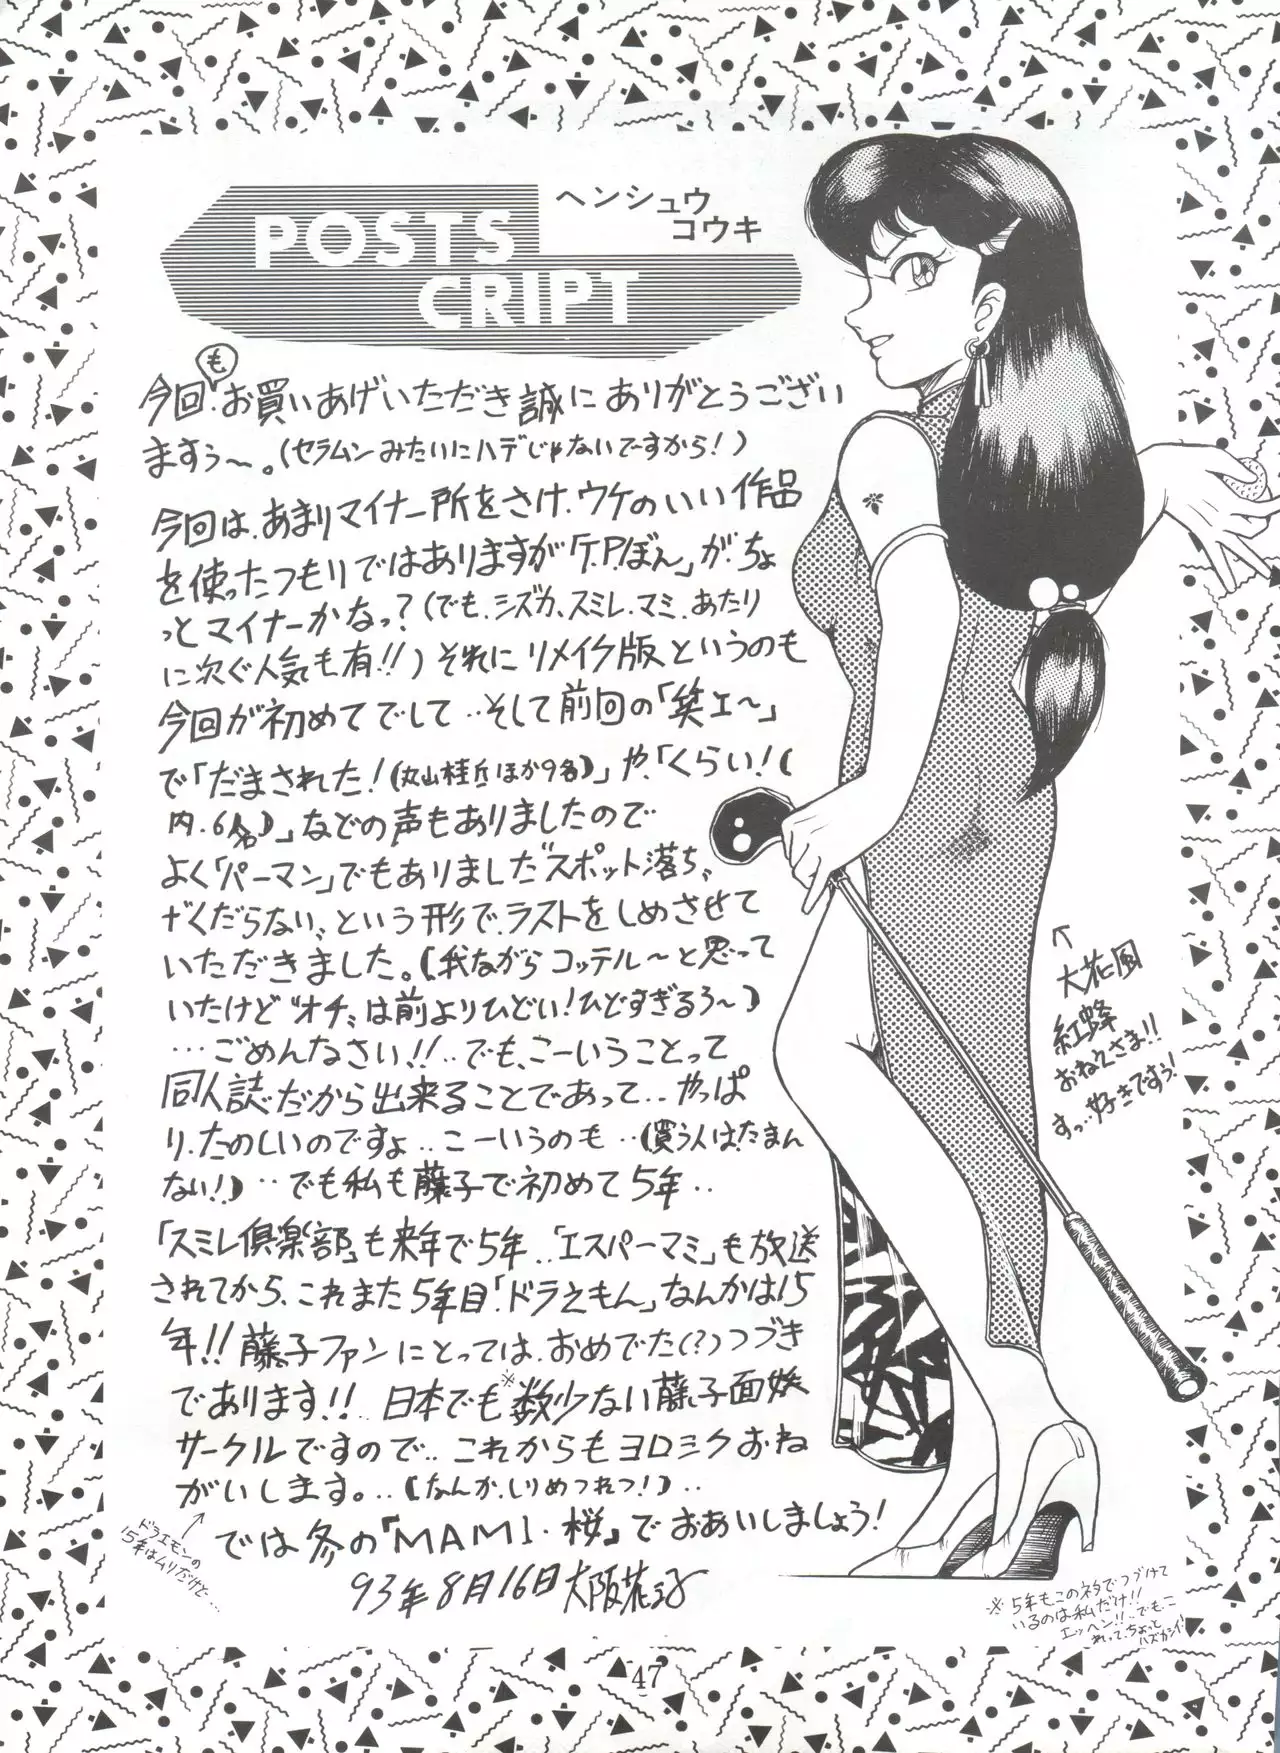 POSTS
CRIPT
ヘンシュウ
コウキ
も
今回、お買いあげいただき誠にありがとうござい
ますぅ〜。(セラムンみたいにハデじゃないでーすから!)
今回は、あまりマイナー所をさけ、ウケのいい作品
を使ったつもりではありますが「T.Pぼん」が、ちょ
っとマイナーかなっ?(でも、シズカ、スミレ、マミ、あたり
に次ぐ人気も有!!)それにリメイク版というのも
今回が初めてでして‥そして前回の「笑ェ〜」
で「だまされた!(丸山桂丘ほか9名)」や、「くらい!(
内、6名)」などの声もありましたので
よく「パーマン」でもありました〝スポット落ち〟
〝くだらない〟という形でラストをしめさせて
いただきました。(我ながらコッテル〜と思って
いたけど〝オチ〟は前よりひどい!ひどすぎるぅ〜)
…ごめんなさい!!‥でも、こーいうことって
同人誌だから出来ることであって‥やっぱ
り、たのしいのですょ‥こーいうのも‥(買う人はたまん
ない!)‥でも私も藤子で初めて5年‥
「スミレ倶楽部」も来年で5年‥「エスパーマミ」も放送
されてから、これまた5年目!「ドラえもん」なんかは15
年!!藤子ファンにとっては、おめでた(?)つづき
であります!!‥日本でも※数少ない藤子面妖
サークルですので‥これからもヨロシクおね
がいします。‥(なんか、しりめつれつ!)‥
では冬の『MAMI・桜』でおあいしましょう!
93年8月16日大阪花子
ドラエモンの
15年はムリだけど…
↑
大花風
紅蜂
おねえさま!!
すっ‥好きですぅ!
※5年もこのネタでつづけて
いるのは私だけ!!
エッヘン!!‥でも、こ
れって、ちょっと
ハズカシイ!
47